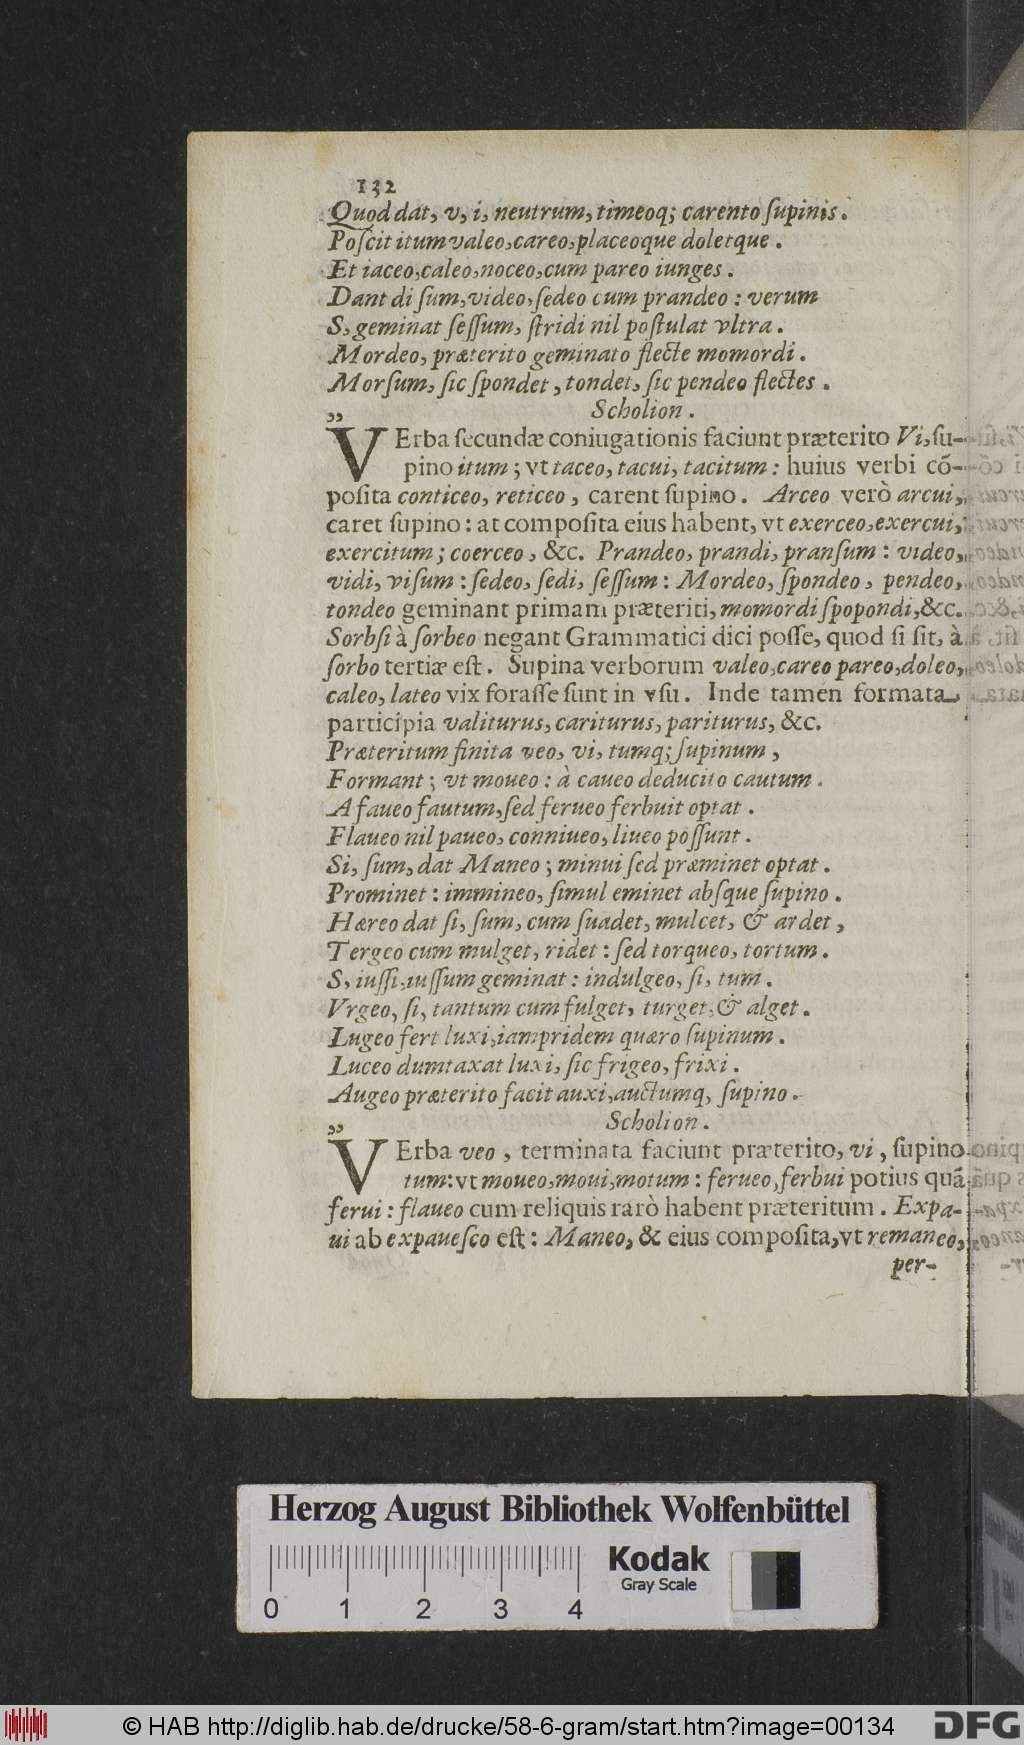 132
Quod dat, v, i, neutrum, timeoq; carento ſupinis.
Poſcit itum valeo, careo, placeoque doletque.
Et iaceo, caleo, noceo, cum pareo iunges.
Dant di ſum, video, ſedeo cum prandeo: verum
S, geminat ſeſſum, ſtridi nil poſtulat vltra.
Mordeo, præterito geminato flecte momordi.
Morſum, ſic ſpondet, tondet, ſic pendeo flectes.
Scholion.
„ VErba ſecundæ coniugationis faciunt præterito Vi, ſu-
pino itum; vt taceo, tacui, tacitum: huius verbi cō-
poſita conticeo, reticeo, carent ſupino. Arceo verò arcui,
caret ſupino: at compoſita eius habent, vt exerceo, exercui,
exercitum; coerceo, &c. Prandeo, prandi, pranſum: video,
vidi, viſum: ſedeo, ſedi, ſeſſum: Mordeo, ſpondeo, pendeo,
tondeo geminant primam præteriti, momordi ſpopondi, &c.
Sorbſi à ſorbeo negant Grammatici dici poſſe, quod ſi ſit, à
ſorbo tertiæ eſt. Supina verborum valeo, careo pareo, doleo,
caleo, lateo vix foraſſe ſunt in vſu. Inde tamen formata
participia valiturus, cariturus, pariturus, &c.
Præteritum finita veo, vi, tumq; ſupinum,
Formant; vt moueo: à caueo deducito cautum.
A faueo fautum, ſed ferueo ferbuit optat.
Flaueo nil paueo, conniueo, liueo poſſunt.
Si, ſum, dat Maneo; minui ſed præminet optat.
Prominet: immineo, ſimul eminet abſque ſupino.
Hæreo dat ſi, ſum, cum ſuadet, mulcet, & ardet,
Tergeo cum mulget, ridet: ſed torqueo, tortum.
S, iuſſi, iuſſum geminat: indulgeo, ſi, tum.
Vrgeo, ſi, tantum cum fulget, turget, & alget.
Lugeo fert luxi, iampridem quæro ſupinum.
Luceo dumtaxat luxi, ſic frigeo, frixi.
Augeo præterito facit auxi, auctumq, ſupino.
Scholion.
„ VErba veo, terminata faciunt præterito, vi, ſupino
tum: vt moueo, moui, motum: ferueo, ferbui potius quā
ferui: flaueo cum reliquis rarò habent præteritum. Expa-
ui ab expaueſco eſt: Maneo, & eius compoſita, vt remaneo,
per-
Herzog August Bibliothek Wolfenbüttel
Kodak
Gray Scale
0 1 2 3 4
© HAB http://diglib.hab.de/drucke/58-6-gram/start.htm?image=00134
DFG